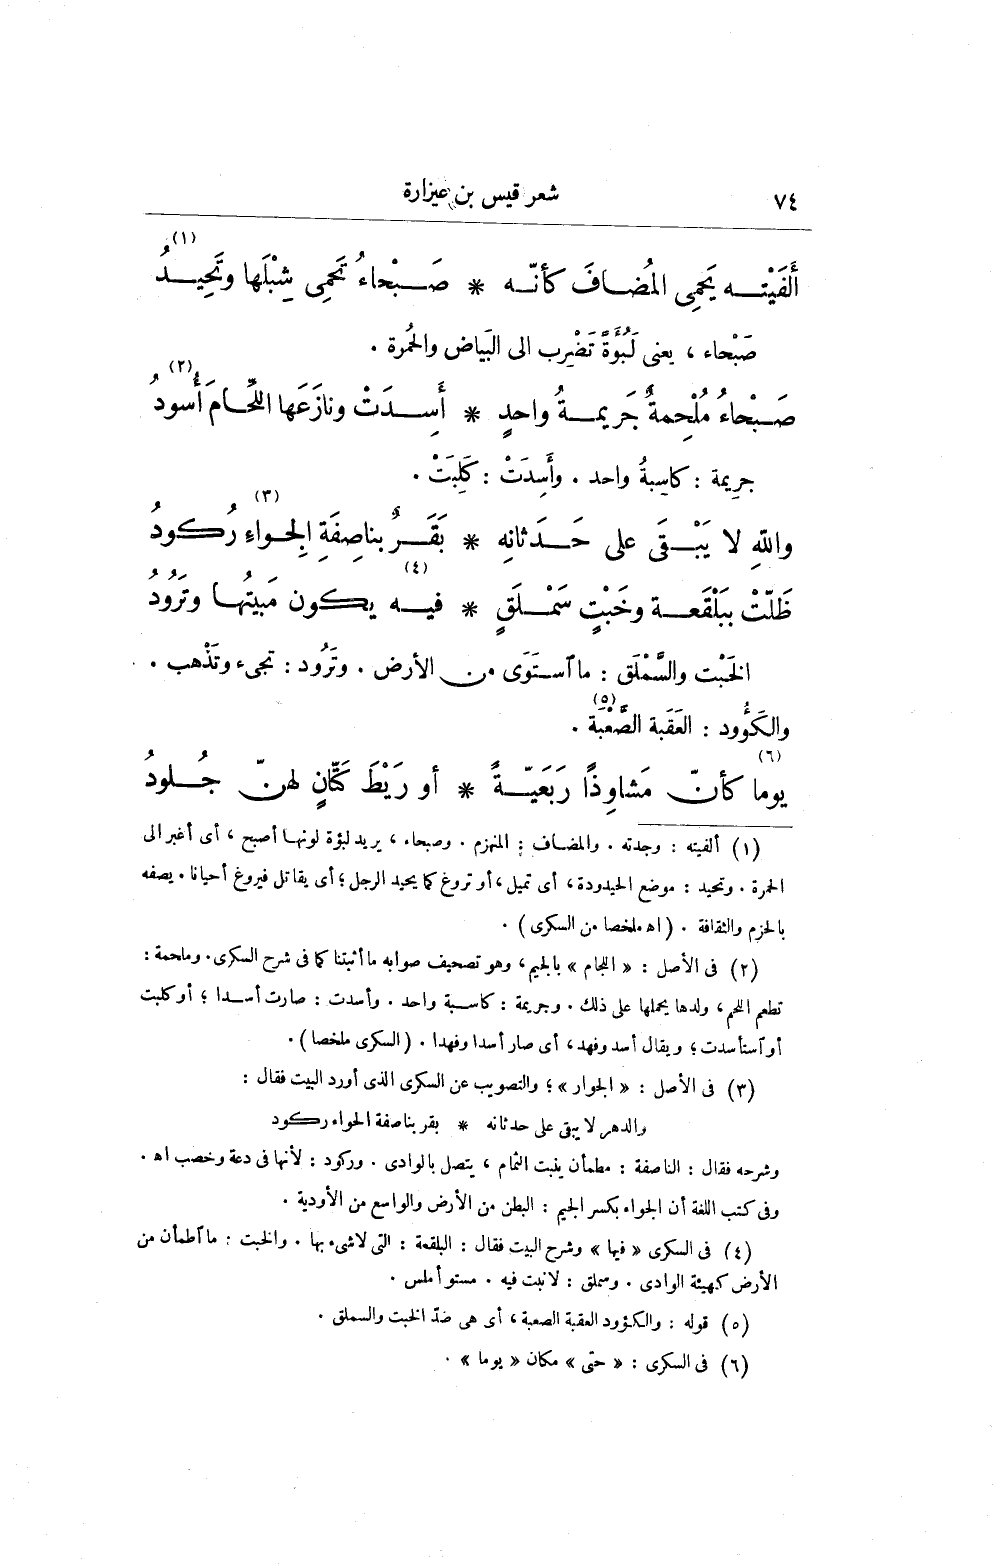 ٧٤
شعر قيس بن عيزارة
أَلفَيْتـــه يَحمِى المُضـافَ كأنّــه * صَــبْحاءُ تَحمِى شِبْلَها وتَحِيــدُ (١)
صَبْحاء ، يعنى لَبُؤَةً تَضْرِب الى البَياض والحُمرة .
صَــبْحاءُ مُلْحِمةٌ جَرِيمــةُ واحدٍ * أَسِــدَتْ ونازَعَها اللِّحَـامَ أُسودُ (٢)
جريمة : كاسِبةُ واحد . وأَسِدَتْ : كَلِبَتْ .
واللهِ لا يَبْــقَى على حَــدَثانِه * بَقَــرٌ بناصِفَةِ الجِواءِ رُكُودُ (٣)
ظَلّتْ ببَلْقَعــة وخَبْتٍ سَمْــلَقٍ * فيــه يكون مَبيتُها وتَرُودُ (٤)
الخَبْت والسَّمْلَق : ما ٱستَوَى من الأرض . وتَرُود : تجىء وتَذْهب .
والكَؤُود : العَقَبة الصَّعْبَة (٥) .
يوما كأنّ مَشاوِذًا رَبَعَيّــةً * أو رَيْطَ كَتّانٍ لهنّ جُــلودُ (٦)
(١) ألفيته : وجدته . والمضاف : المنهزم . وصبحاء ، يريد لبؤة لونها أصبح ، أى أغبر الى
الحمرة . وتحيد : موضع الحيدودة ، أى تميل ، أو تروغ كما يحيد الرجل ؛ أى يقاتل فيروغ أحيانا . يصفه
بالحزم والثقافة . (اه ملخصا من السكرى) .
(٢) فى الأصل : « اللجام » بالجيم ، وهو تصحيف صوابه ما أثبتنا كما فى شرح السكرى . وملحمة :
تطعم اللحم ، ولدها يحملها على ذلك . وجريمة : كاسبة واحد . وأسدت : صارت أسدا ؛ أو كلبت
أو ٱستأسدت ؛ ويقال أسد وفهد ، أى صار أسدا وفهدا . (السكرى ملخصا) .
(٣) فى الأصل : « الجوار » ؛ والتصويب عن السكرى الذى أورد البيت فقال :
والدهر لا يبقى على حدثانه * بقر بناصفة الجواء ركود
وشرحه فقال : الناصفة : مطمأن ينبت الثمام ، يتصل بالوادى . وركود : لأنها فى دعة وخصب اه .
وفى كتب اللغة أن الجواء بكسر الجيم : البطن من الأرض والواسع من الأودية .
(٤) فى السكرى « فيها » وشرح البيت فقال : البلقعة : التى لاشىء بها . والخبت : ما ٱطمأن من
الأرض كهيئة الوادى . وسملق : لانبت فيه . مستو أملس .
(٥) قوله : والكؤود العقبة الصعبة ، أى هى ضدّ الخبت والسملق .
(٦) فى السكرى : « حتى » مكان « يوما » .